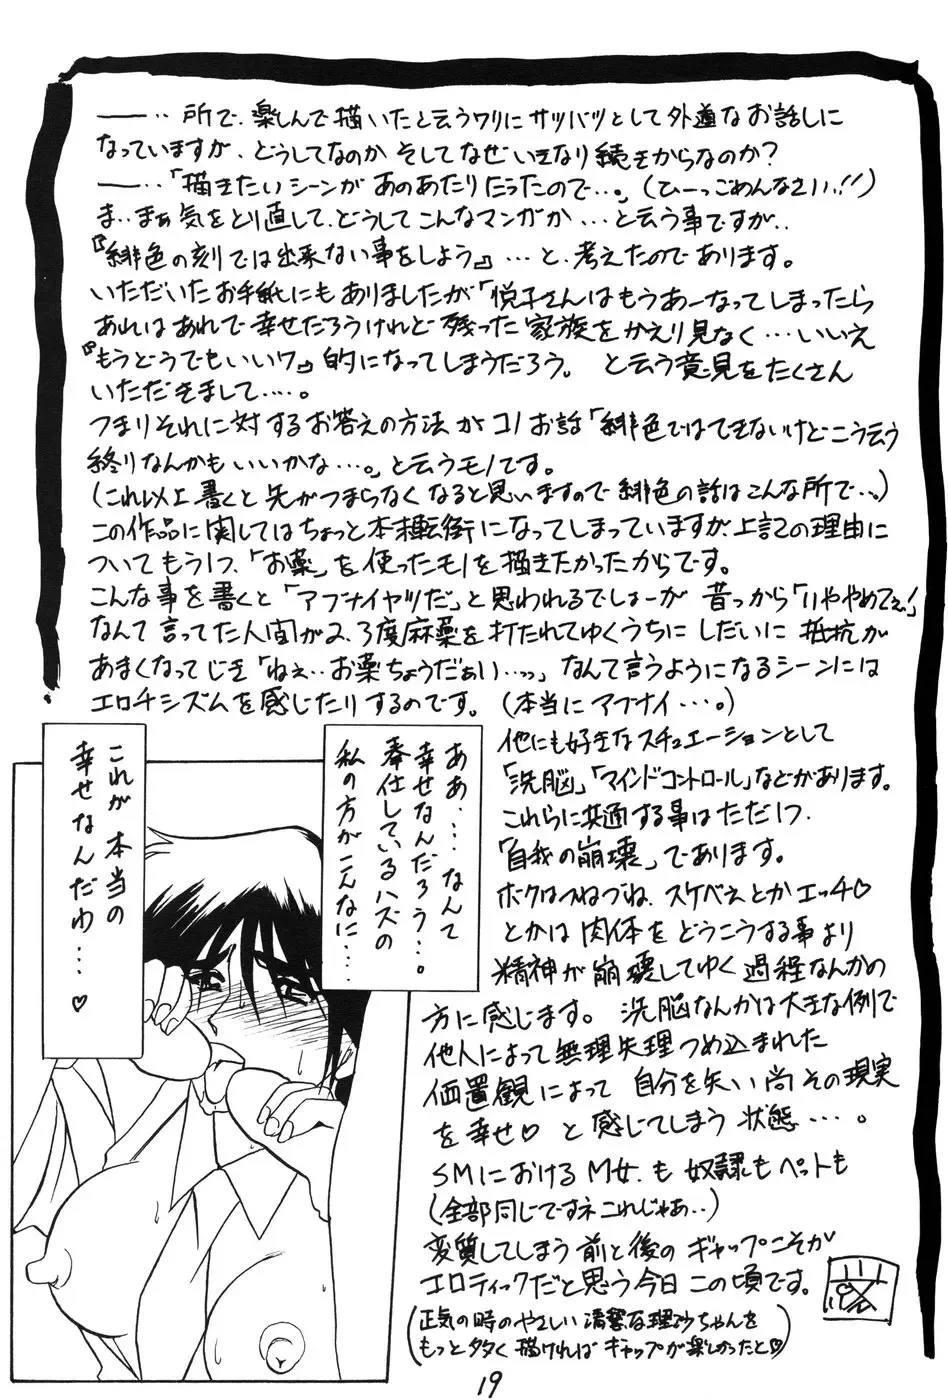 ――‥所で、楽しんで描いたと云うワリにサツバツとして外道なお話しに
なっていますが、どうしてなのか そしてなぜいきなり続きからなのか?
――‥「描きたいシーンがあのあたりだったので…。」(ひーっごめんなさい!!)
ま‥まぁ気をとり直して、どうしてこんなマンガか…と云う事ですが‥
『緋色の刻では出来ない事をしよう』…と、考えたのであります。
いただいたお手紙にもありましたが「悦子さんはもうあーなってしまったら
あれはあれで幸せだろうけれど残った家族をかえり見なく…いいえ
『もうどうでもいいワ』的になってしまうだろう。 と云う意見をたくさん
いただきまして…。
つまりそれに対するお答えの方法がコノお話「緋色ではできないけどこう云う
終りなんかもいいかな…。」と云うモノです。
(これ以上書くと先がつまらなくなると思いますので緋色の話はこんな所で‥。)
この作品に関してはちょっと本末転倒になってしまっていますが、上記の理由に
ついてもう1つ、「お薬」を使ったモノを描きたかったからです。
こんな事を書くと「アブナイヤツだ」と思われるでしょーが 昔っから「いややめてぇ!」
なんて言ってた人間が2、3度麻薬を打たれてゆくうちに しだいに 抵抗が
あまくなってじき「ねぇ‥お薬ちょうだぁい…っ」なんて言うようになるシーンには
エロチシズムを感じたりするのです。(本当にアブナイ…。)
他にも好きなスチュエーションとして
「洗脳」「マインドコントロール」などがあります。
これらに共通する事はただ1つ
「自我の崩壊」であります。
ボクはつねづね、スケベぇとかエッチ♡
とかは肉体をどうこうする事より
精神が崩壊してゆく過程なんかの
方に感じます。 洗脳なんかは大きな例で
他人によって無理矢理つめ込まれた
価置観によって 自分を失い尚その現実
を幸せ♡と感じてしまう状態…。
SMにおけるM女も奴隷もペットも
(全部同じですネこれじゃあ‥)
変質してしまう前と後のギャップこそが
エロティックだと思う今日この頃です。
(正気の時のやさしい清楚な理沙ちゃんを
もっと多く描ければギャップが楽しかったと♡)
ああ…なんて
幸せなんだろう…。
奉仕しているハズの
私の方がこんなに…
これが本当の
幸せなんだわ…♡
19